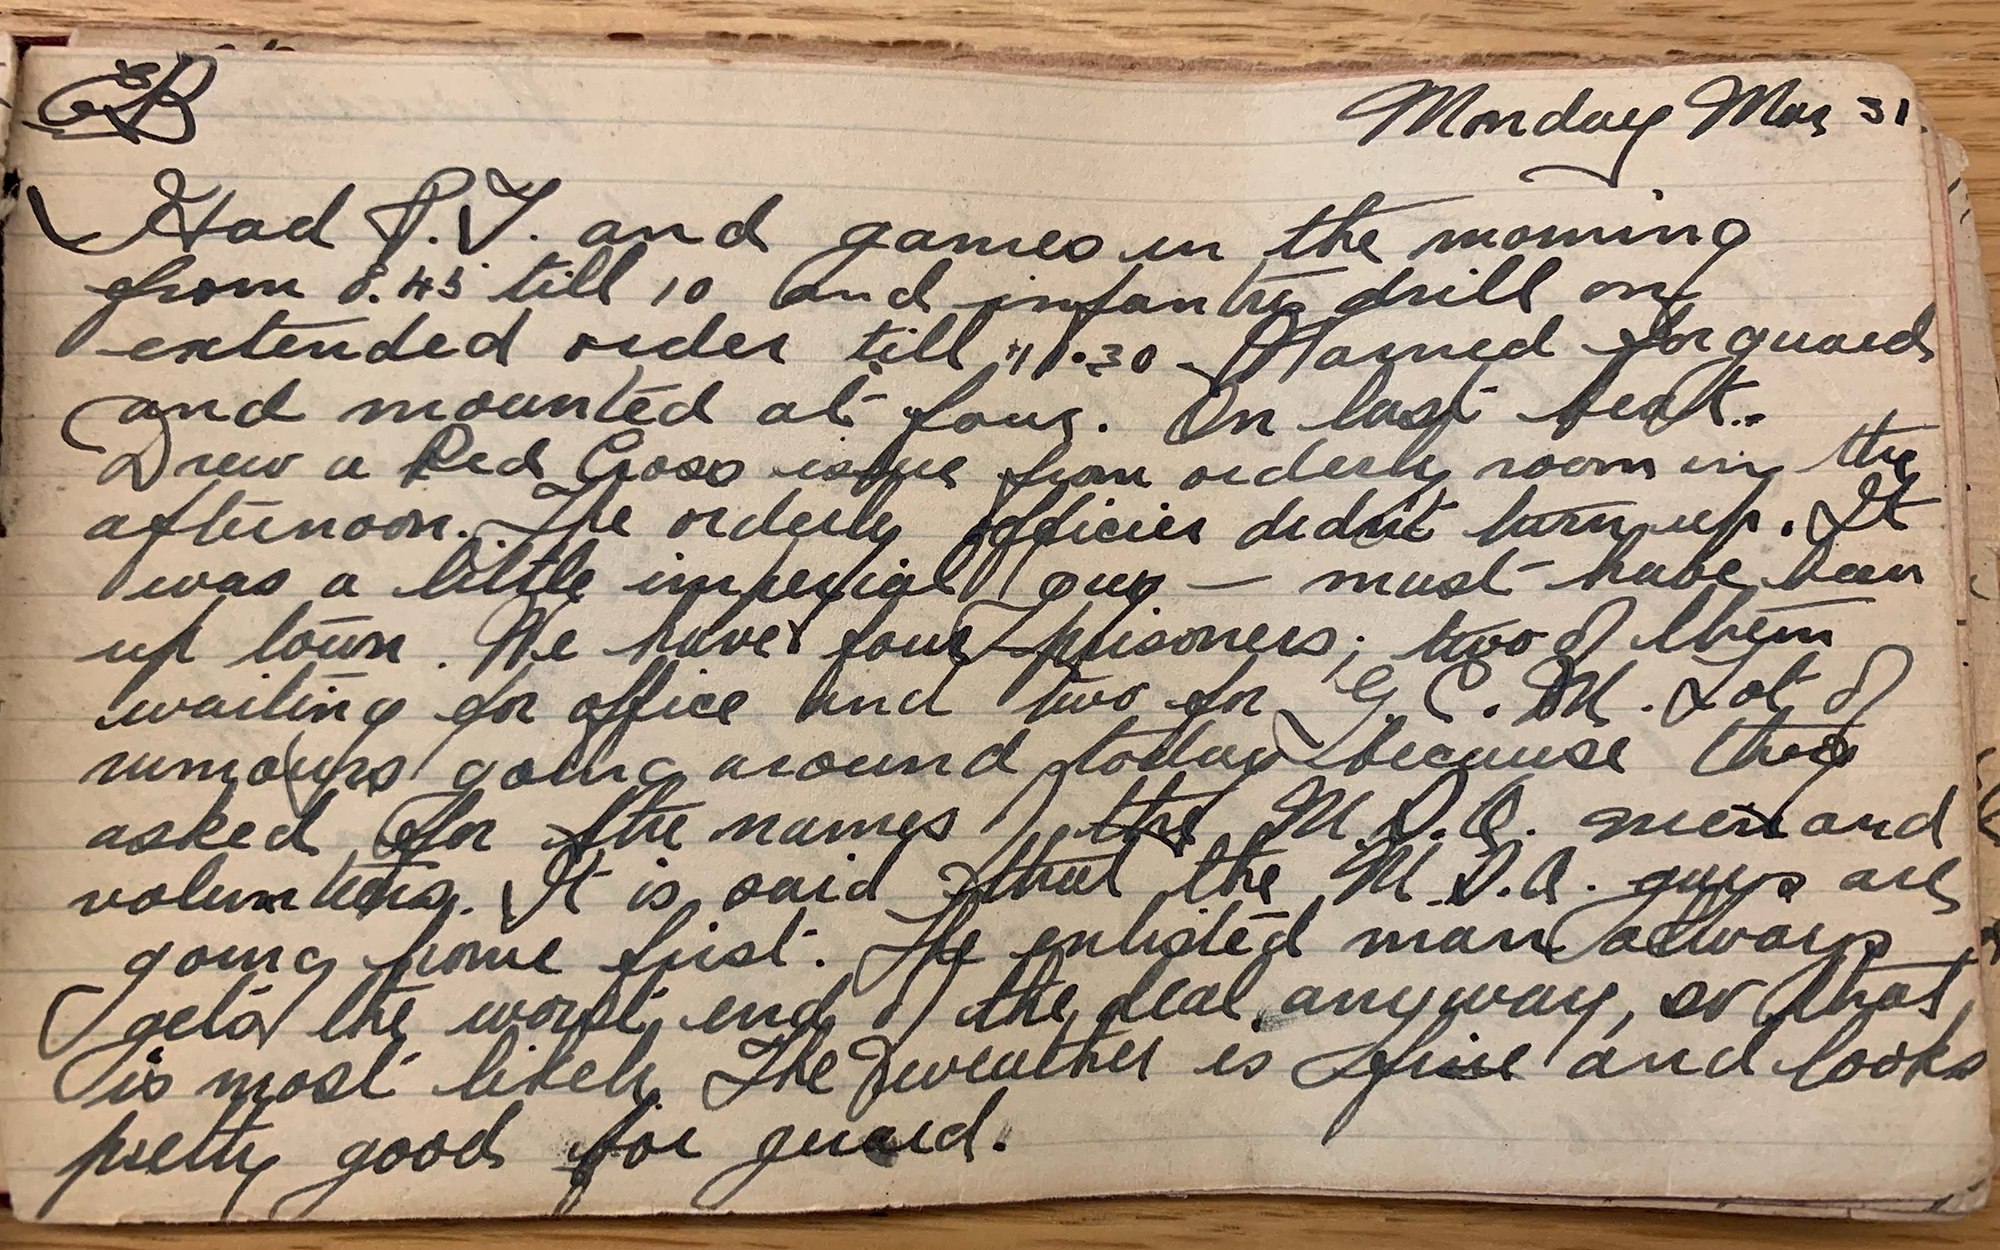 Monday Mar 31
Had P.T. and games in the morning
from 8.45 till 10 and infantry drill on
extended order till 11.30. Named for guard
and mounted at four. On last beat.
Drew a Red Cross issue from orderly room in the
afternoon. The orderly officier didn't turn up. It
was a little imperial guy — must have been
up town. We have four prisoners; two of them
waiting for office and two for G.C.M. Lot of
rumours going around today because they
asked for the names of the M.S.A. men and
volunteers. It is said that the M.S.A. guys are
going home first. The enlisted man always
gets the worst end of the deal anyway, so that
is most likely. The weather is fine and looks
pretty good for guard.